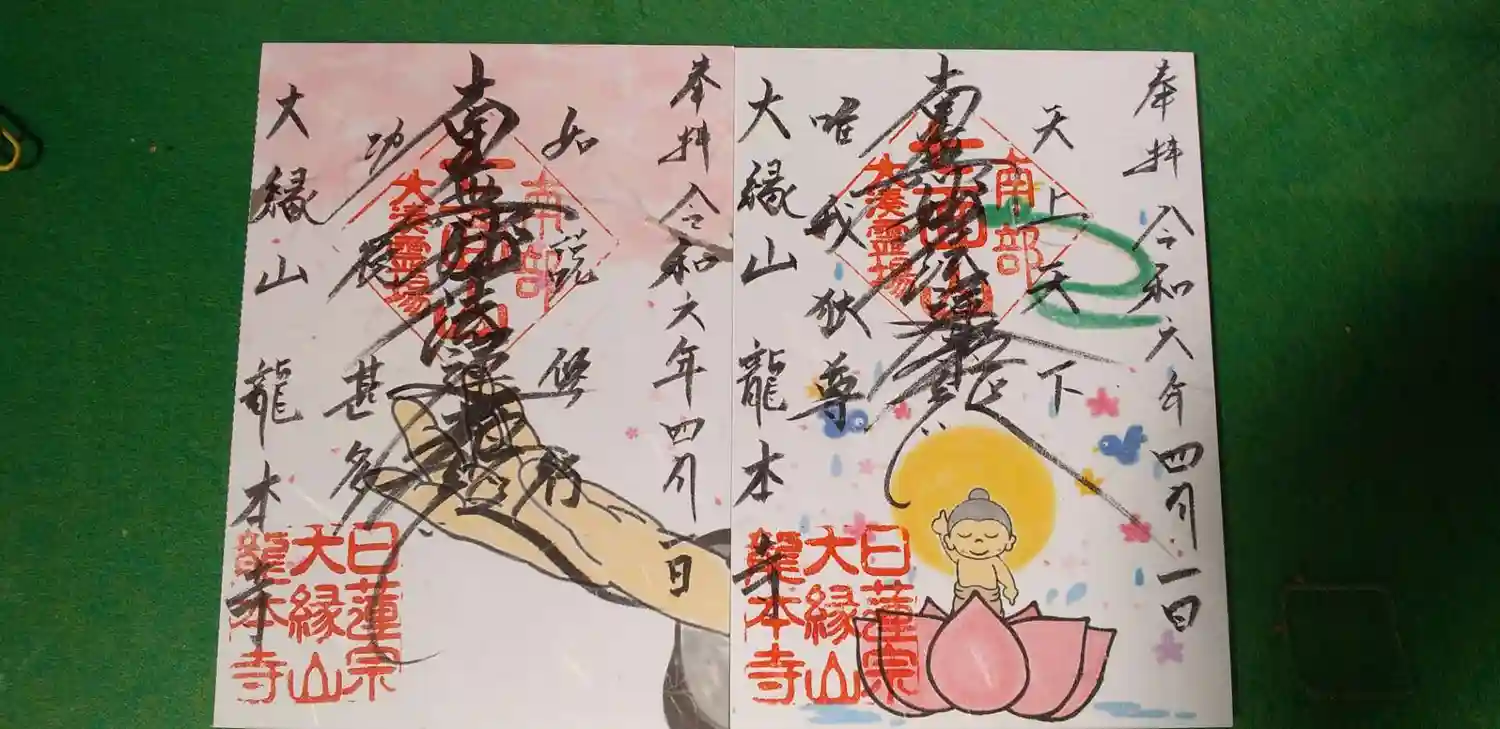 奉拝 令和六年四月一日
天上天下
南無妙法蓮華経
唯我独尊
大縁山 龍本寺
南部
大湊霊場
日蓮宗
大縁山
龍本寺
奉拝 令和六年四月一日
如説修行
南無妙法蓮華経
功徳甚多
大縁山 龍本寺
南部
大湊霊場
日蓮宗
大縁山
龍本寺